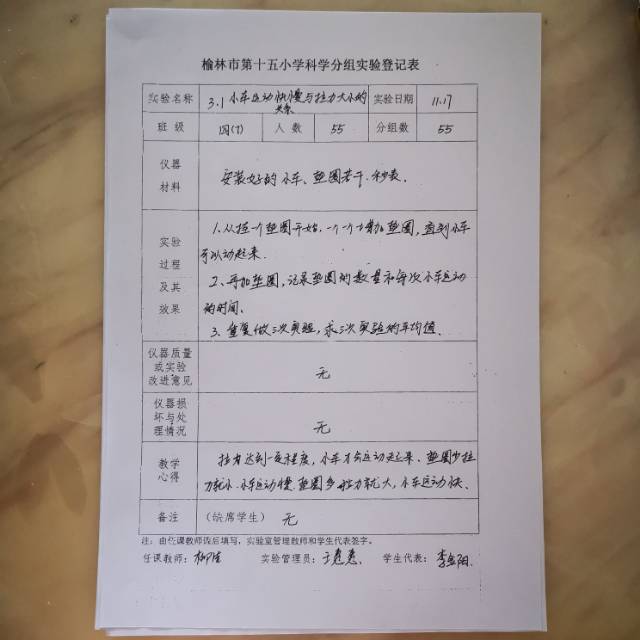 榆林市第十五小学科学分组实验登记表
实验名称 3.1 小车运动快慢与拉力大小的关系 实验日期 11.17
班级 四(7) 人数 55 分组数 55
仪器材料 安装好的小车、垫圈若干、秒表.
实验过程及其效果 1.从挂一个垫圈开始,一个一个增加垫圈,直到小车
可以动起来.
2、再加垫圈,记录垫圈的数量和每次小车运动
的时间、
3、重复做三次实验,求三次实验的平均值、
仪器质量或实验改进意见 无
仪器损坏与处理情况 无
教学心得 拉力达到一定程度,小车才会运动起来、垫圈少拉
力就小、小车运动慢,垫圈多,拉力就大,小车运动快、
备注 (缺席学生) 无
注:由任课教师课后填写,实验室管理教师和学生代表签字。
任课教师: 实验管理员: 学生代表: